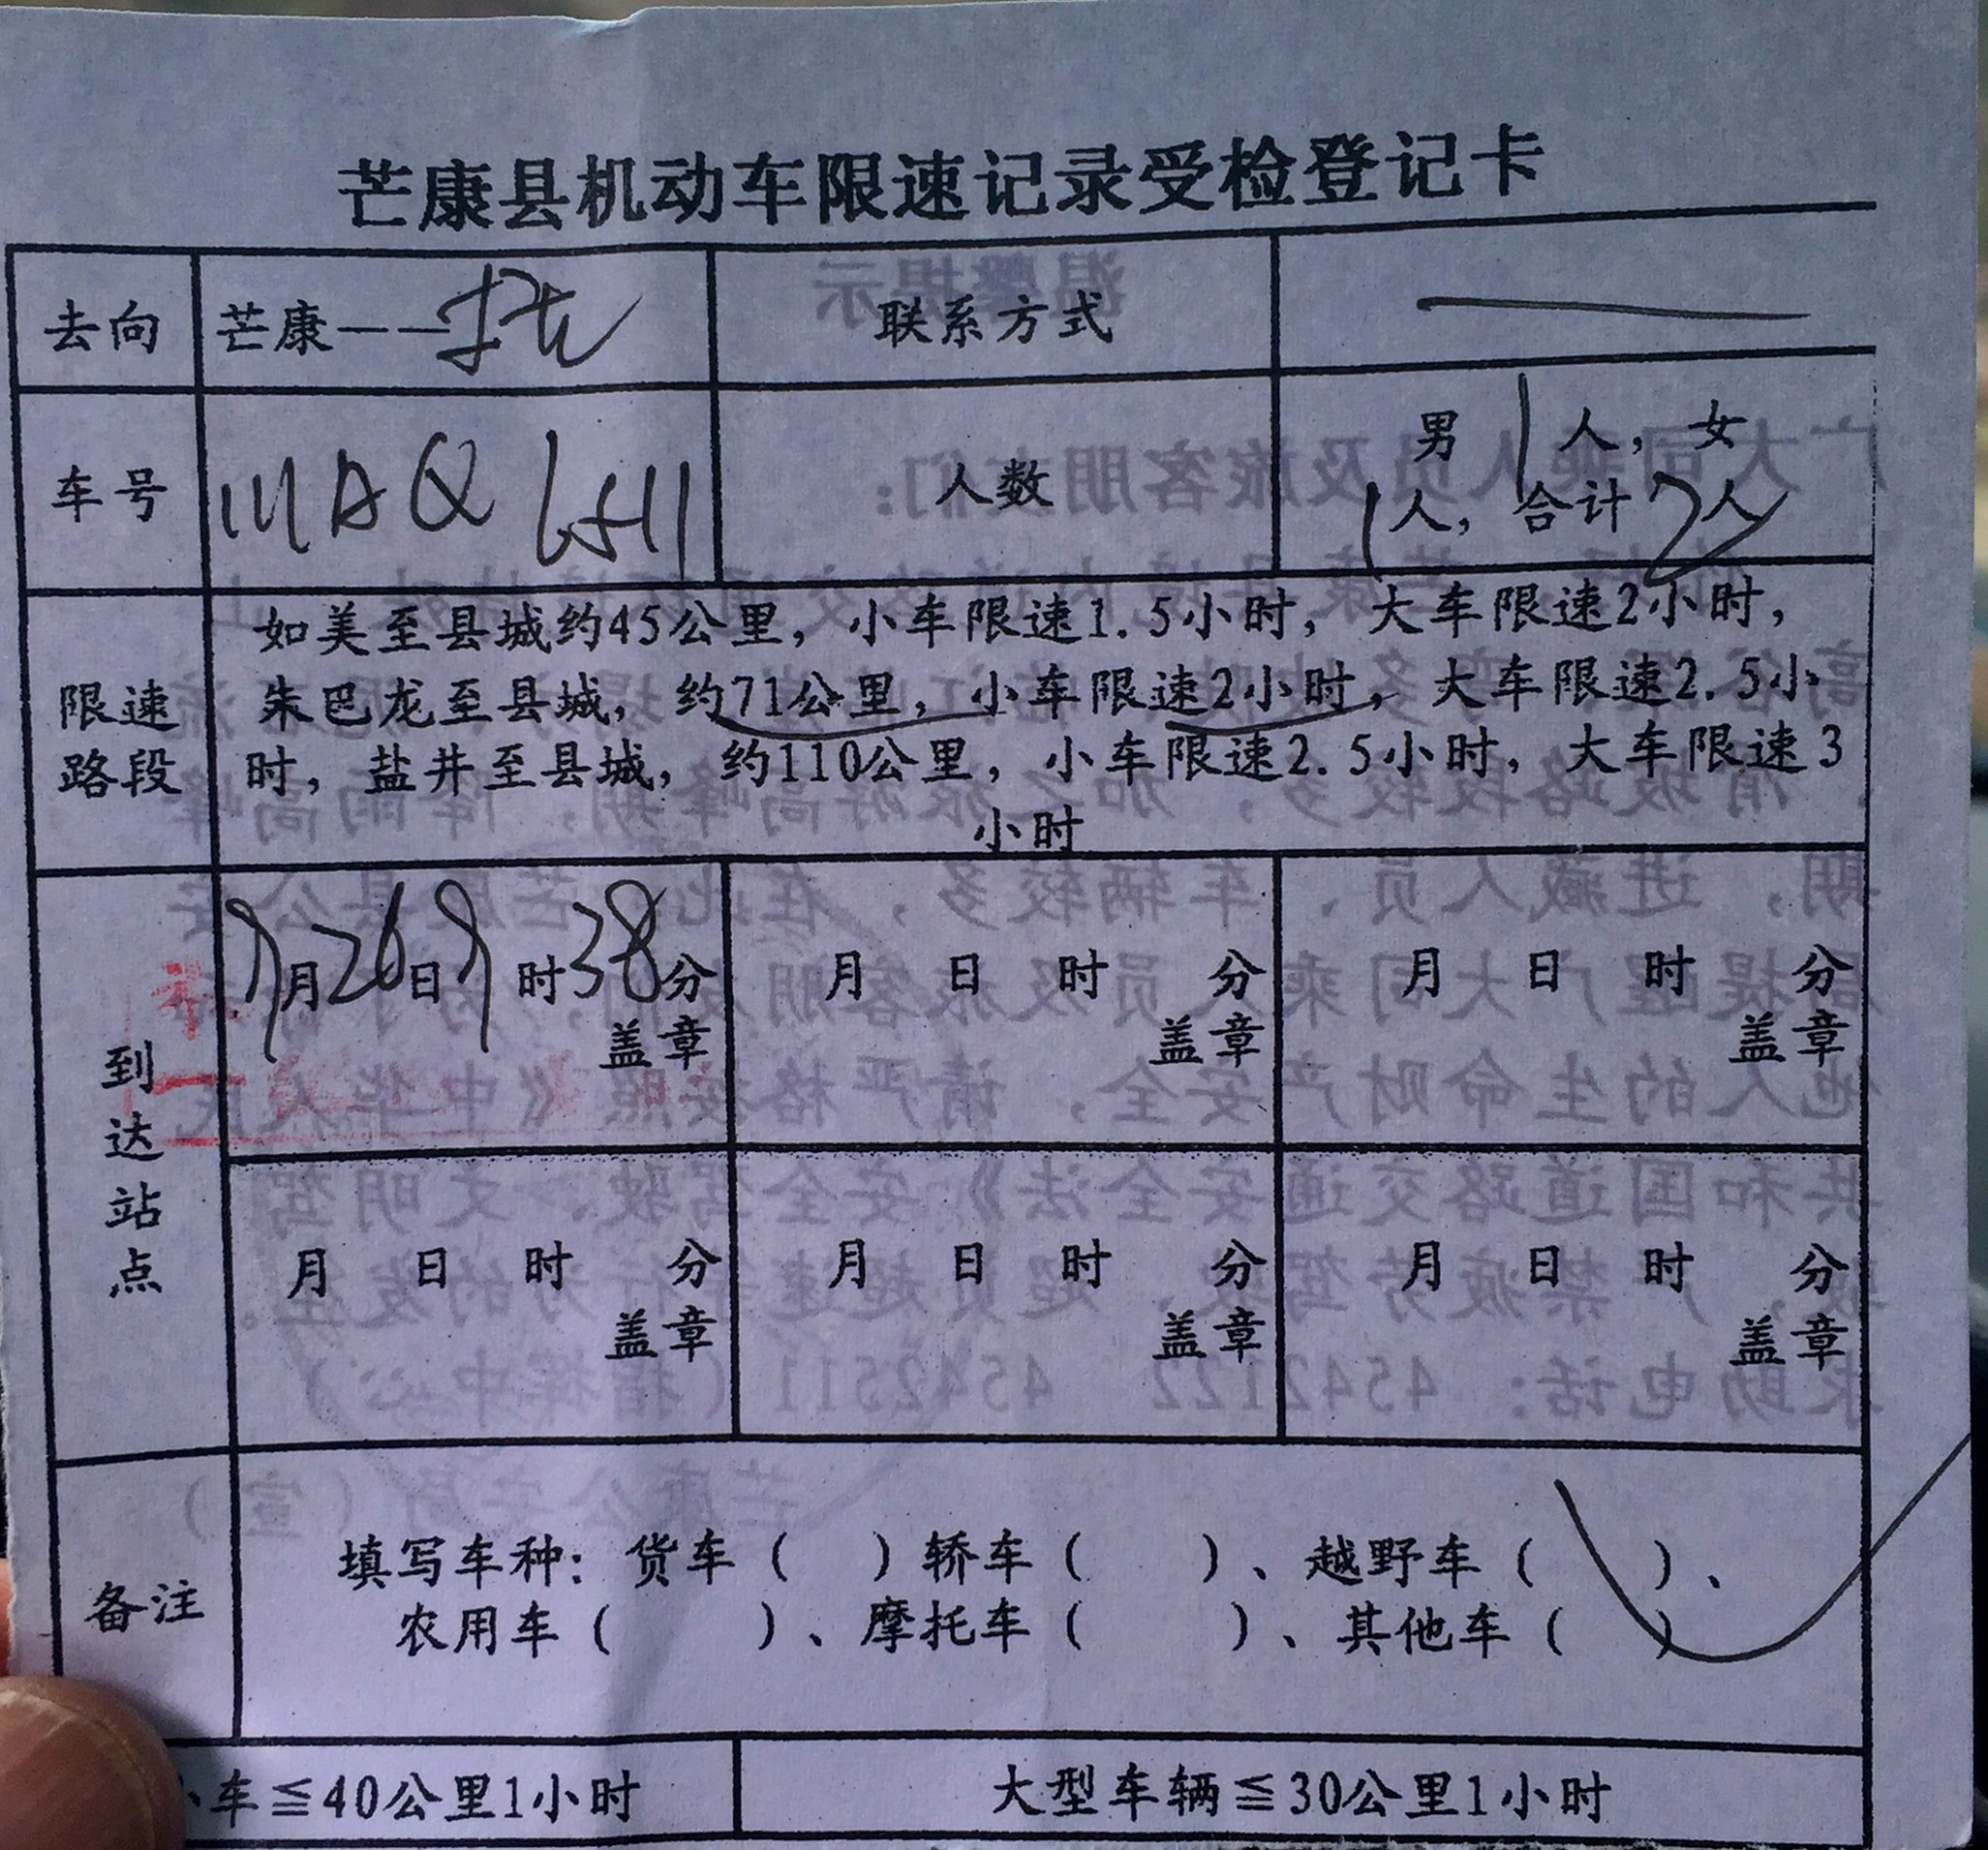 芒康县机动车限速记录受检登记卡
去向 芒康—— 联系方式
车号 人数 男1人，女
1人，合计2人
限速路段 如美至县城约45公里，小车限速1.5小时，大车限速2小时，
朱巴龙至县城，约71公里，小车限速2小时，大车限速2.5小
时，盐井至县城，约110公里，小车限速2.5小时，大车限速3
小时
到达站点
9月26日9时38分 月 日 时 分 月 日 时 分
盖章 盖章 盖章
月 日 时 分 月 日 时 分 月 日 时 分
盖章 盖章 盖章
备注 填写车种：货车（ ）轿车（ ）、越野车（ ）、
农用车（ ）、摩托车（ ）、其他车（ ）
车≦40公里1小时 大型车辆≦30公里1小时